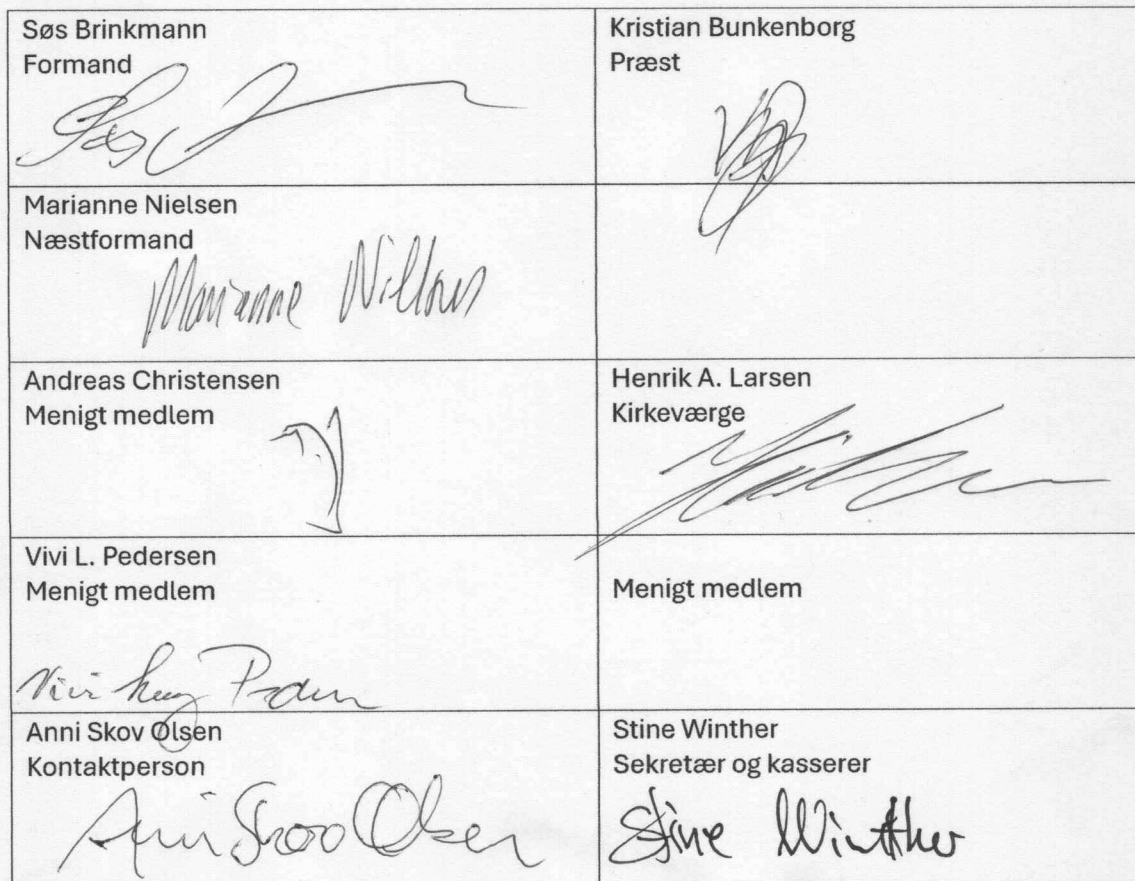 Søs Brinkmann
Formand
Kristian Bunkenborg
Præst
Marianne Nielsen
Næstformand
Marianne
Andreas Christensen
Menigt medlem
Henrik A. Larsen
Kirkeværge
Vivi L. Pedersen
Menigt medlem
Menigt medlem
Vivi
Anni Skov Olsen
Kontaktperson
Stine Winther
Sekretær og kasserer
Anni Skov Olsen
Stine Winther